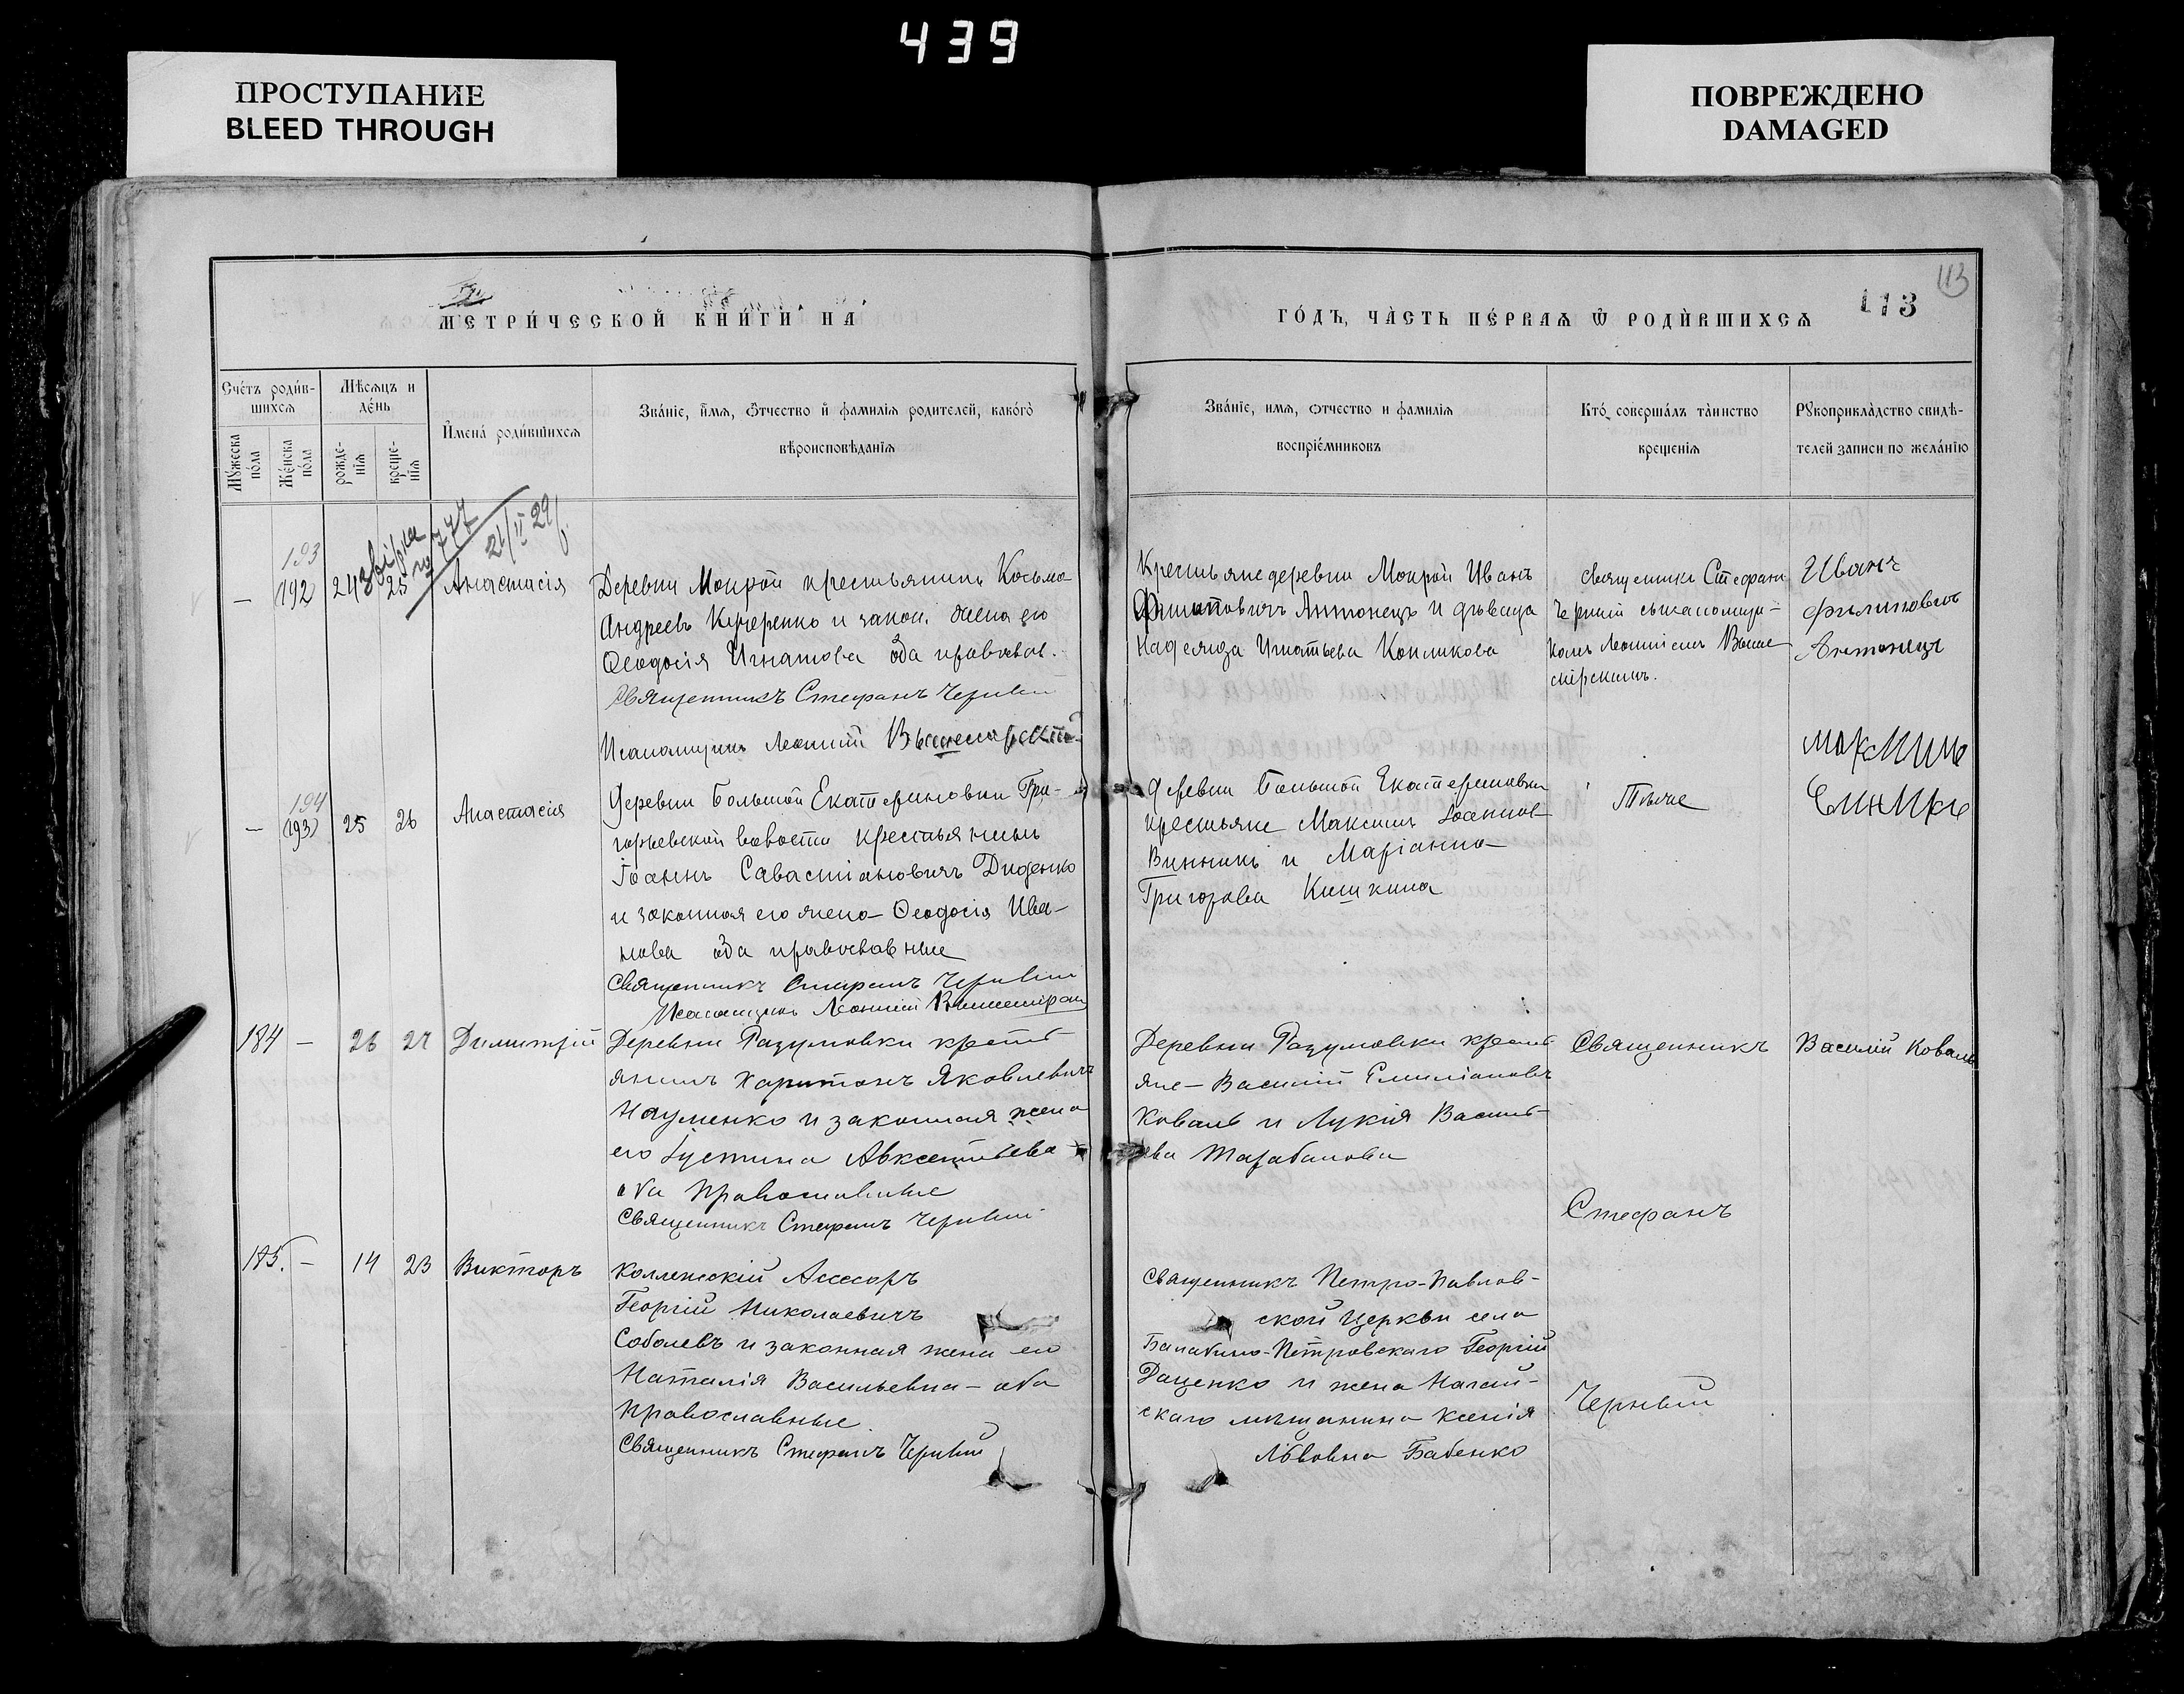 439
ПРОСТУПАНИЕ
BLEED THROUGH
ПОВРЕЖДЕНО
DAMAGED
МЕТРИ́ЧЕСКОЙ КНИ́ГИ НА
ГО́ДЪ, ЧА́СТЬ ПЕ́РВАѦ Ѿ РОДИ́ВШИХСѦ
113
113
Сче́тъ роди́в-
шихсѧ
Мѣсѧцъ и
де́нь
Мꙋ́жеска по́ла
Же́нска по́ла
рожде-
нїѧ
креще-
нїѧ
И҆мена́ роди́вшихсѧ
Зва́нїе, и҆́мѧ, ѻ҆́тчество и҆ фамилїѧ родителей, како́гѡ
вѣроисповѣданїѧ
Зва́нїе, имѧ, ѻтчество и фамилїѧ
воспрїе́мниковъ
Кто̀ соверша́лъ та́инство
креще́нїѧ
Рꙋкоприкла́дство свидѣ-
телей записи по жела́нїю
21/II 29
193
192
24
25
Анастасія
Деревни Мокрой крестьянинъ Косьма
Андреевъ Кучеренко и закон. жена его
Ѳеодосія Игнатова оба православ.
Священникъ Стефанъ Черный
Псаломщикъ Леонтій
Крестьяне деревни Мокрой Иванъ
Филиповичъ Антонецъ и дѣвица
Надежда Игнатьева Копликова
Священникъ Стефанъ
Черный съ псаломщи-
комъ Леонтіемъ Выше
мірскимъ.
Иванъ
Филиповъ
Антонецъ
194
(193)
25
26
Анастасія
Деревни Большой Екатериновки Гри-
горьевской волости крестьянинъ
Іоаннъ Савастіановичъ Диденко
и законная его жена Ѳеодосія Ива-
нова оба православные
Священникъ Стефанъ Черный
Псаломщикъ Леонтій Вышемірскій
Деревни Большой Екатериновки
крестьяне Максимъ Іоаннов
Винникъ и Маріанна
Григорьева Кишкина
Тѣ же
максимъ
184
—
26
27
Димитрій
Деревни Разумовки кресть
янинъ Харитонъ Яковлевичъ
Науменко и законная жена
его Іустина Авксентьева
оба православные
Священникъ Стефанъ Черный
Деревни Разумовки кресть
яне — Василій Емиліановъ
Коваль и Лукія Василь
ева Тарабанова
Священникъ
Василій Коваль
Стефанъ
185.
—
14
23
Викторъ
Коллежскій Ассесоръ
Георгій Николаевичъ
Соболевъ и законная жена его
Наталія Васильевна — оба
православные
Священникъ Стефанъ Черный
Священникъ Петро-Павлов-
ской Церкви села
Балабино-Петровскаго Георгій
Даценко и жена Ногай-
скаго мѣщанина Ксенія
Львовна Бабенко
Черный